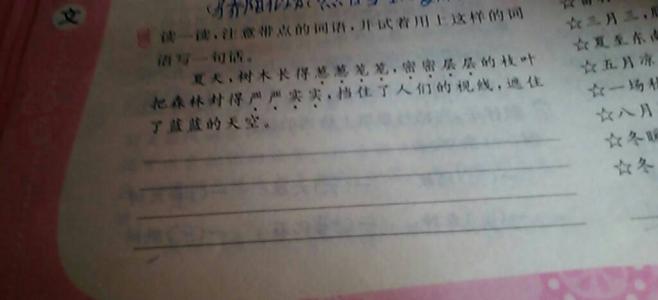 文
读一读,注意带点的词语,并试着用上这样的词
语写一句话。
夏天,树木长得葱葱笼笼,密密层层的枝叶
把森林封得严严实实,挡住了人们的视线,遮住
了蓝蓝的天空。
☆三月三,
☆夏至东
☆五月凉
☆一场
☆八月
☆冬
☆冬